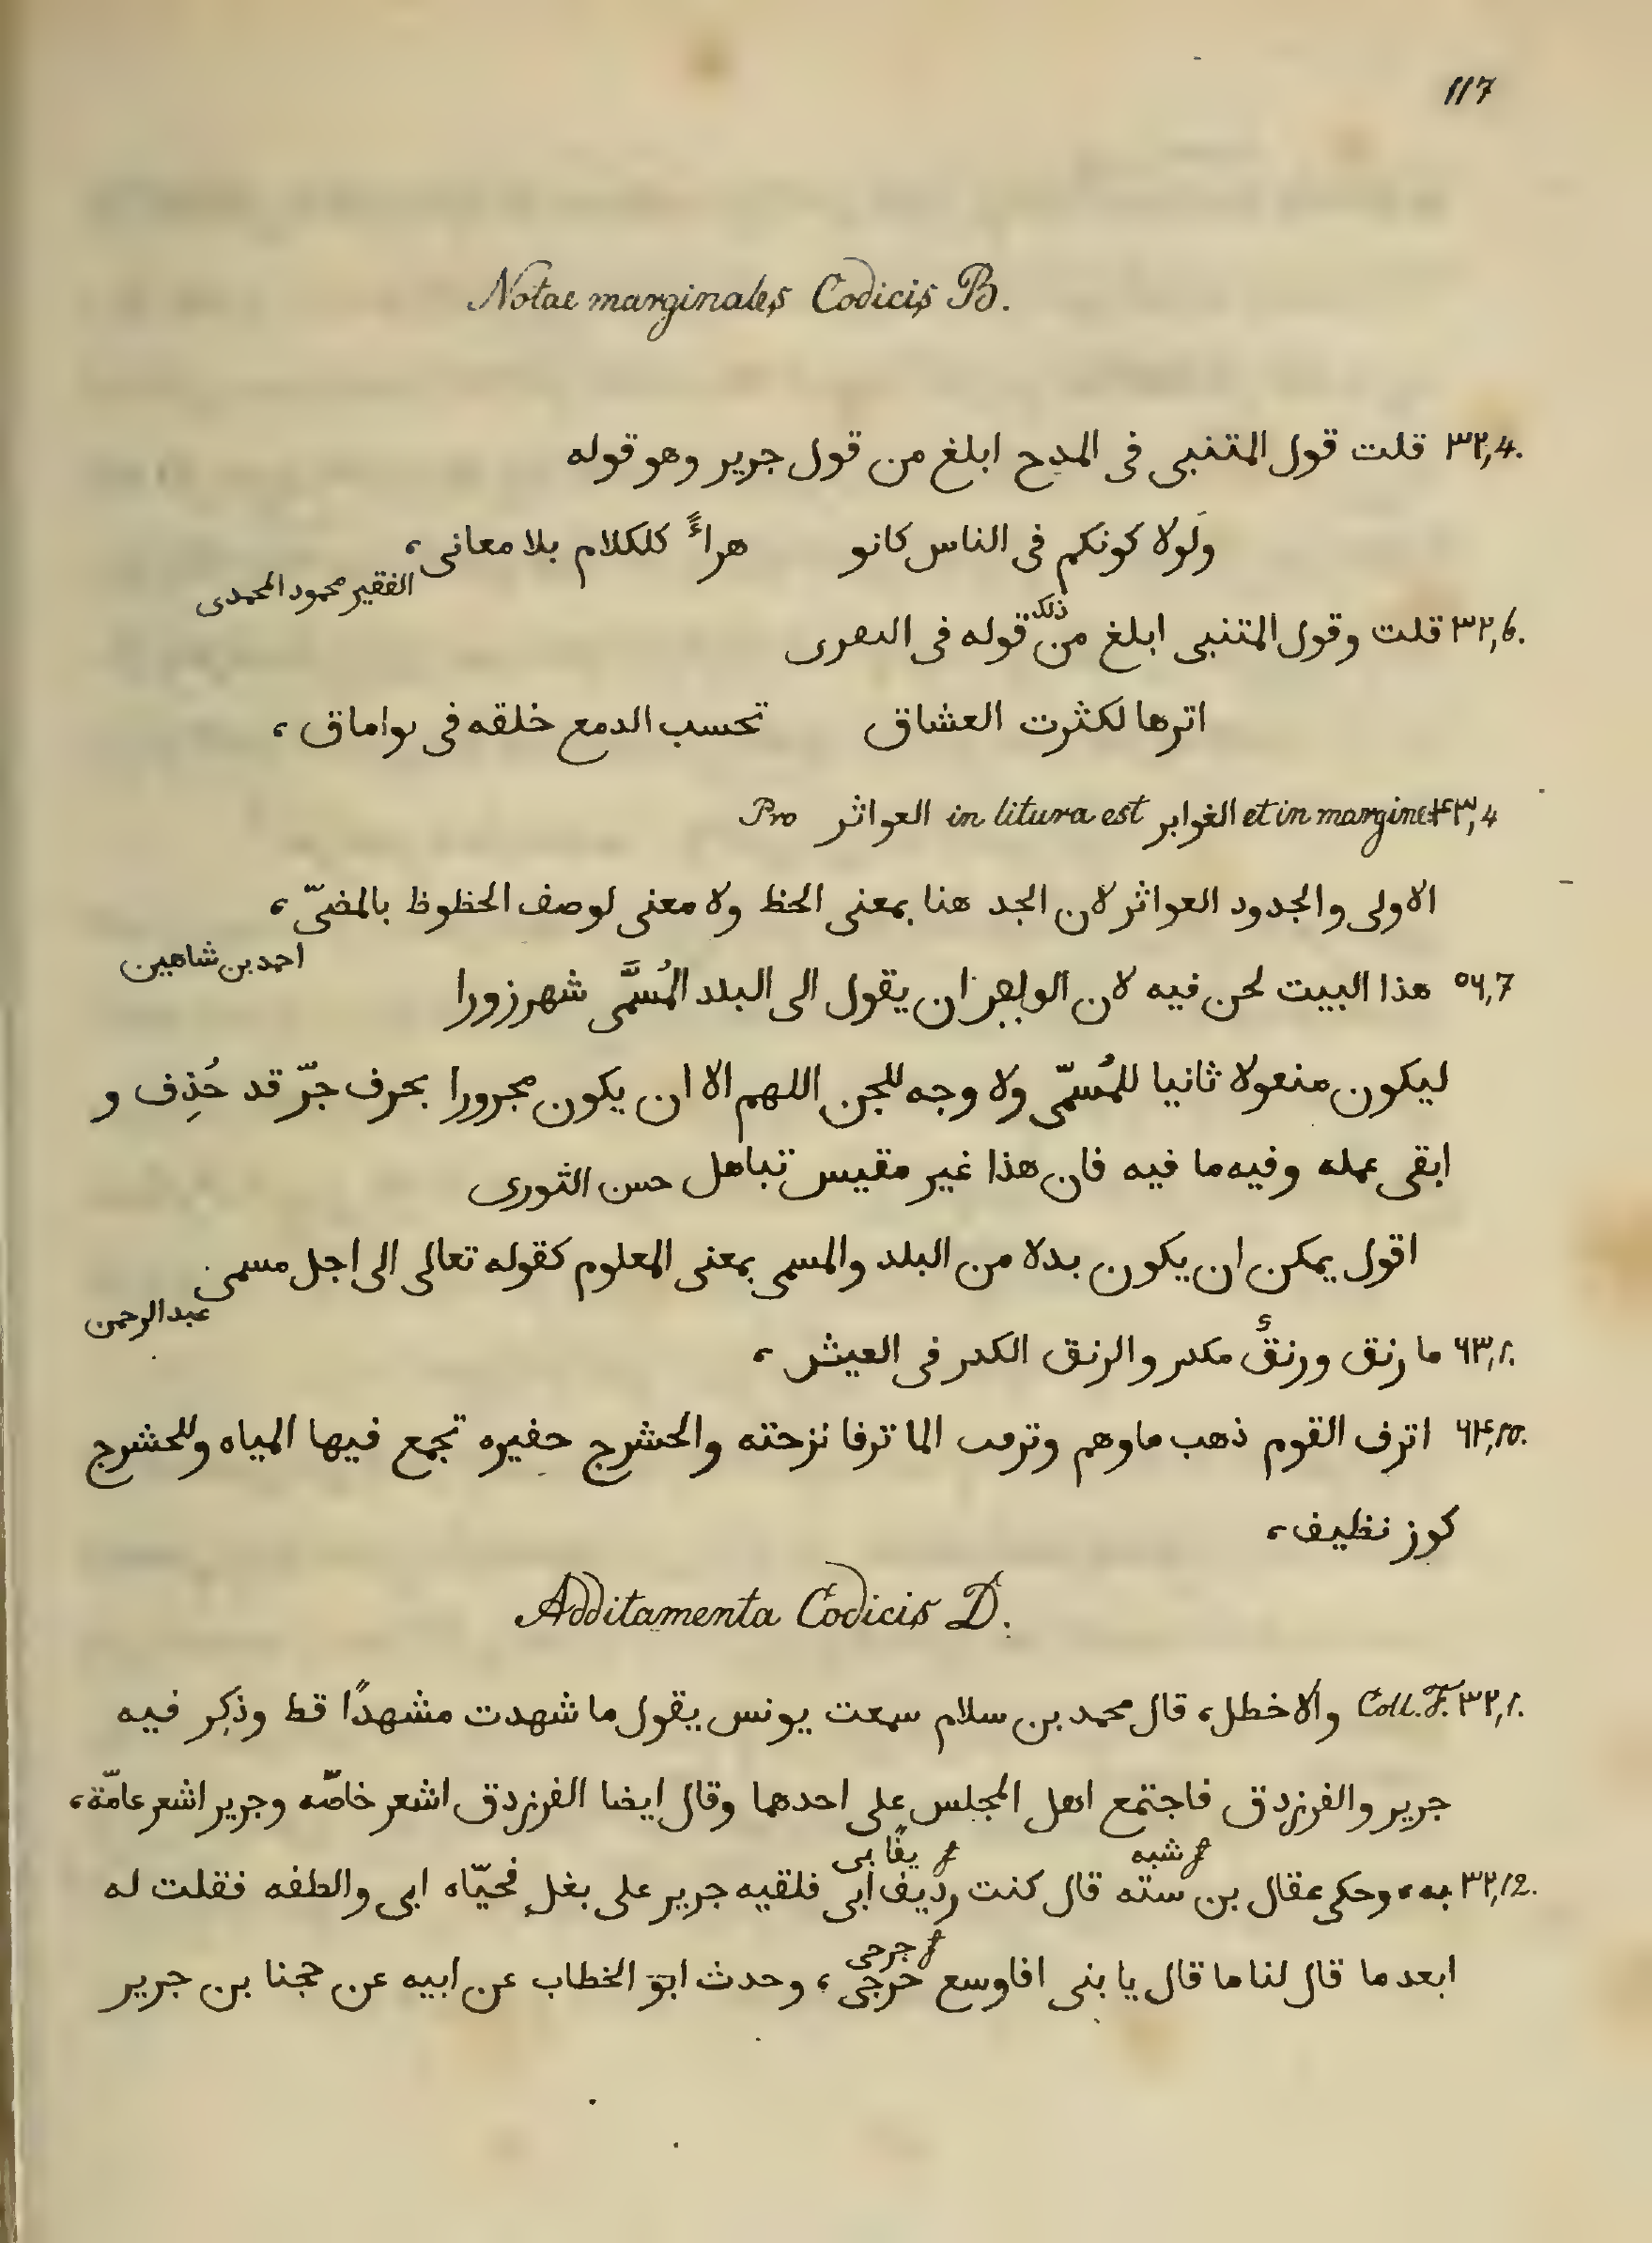 117
Notae marginales Codicis B.
٣٢,4. قلت قول المتنبى فى المدح ابلغ من قول جرير وهو قوله
ولولا كونكم فى الناس كانو هراءً كلكلام بلا معانى،
الفقير محمود المحمدى
٣٢,6. قلت وقول المتنبى ابلغ من ذلك قوله فى
اترها لكثرت العشاق تحسب الدمع خلقه فى ىواماق،
٤٣,4 Pro العواثر in litura est الغوابر et in margine:
الاولى والجدود العواثر لان الجد هنا بمعنى الحظ ولا معنى لوصف الحظوظ بالمضىّ،
احمد بن شاهين
٥٦,7 هذا البيت لحن فيه لان ان يقول الى البلد المُسَمَّى شهرزورا
ليكون منعولا ثانيا للمُسمّى ولا وجه للجن اللهم الا ان يكون مجرورا بحرف جرّ قد حُذِف و
ابقى عمله وفيه ما فيه فان هذا غير مقيس تباهل حسن الثورى
اقول يمكن ان يكون بدلا من البلد والمسمى بمعنى المعلوم كقوله تعالى الى اجل مسمى
عبد الرحمن
٦٣,1. ما رنق ورنقٌ مكدر والرنق الكدر فى العيش،
٦٤,15. اترف القوم ذهب ماوهم وترمت الما ترفا نزحته والحشرج حفيره تجمع فيها المياه وللحشرج
كوز نظيف،
Additamenta Codicis D.
٣٢,1. Coll. F. والاخطل، قال محمد بن سلام سمعت يونس يقول ما شهدت مشهدًا قط وذكِر فيه
جرير والفرزدق فاجتمع اهل المجلس على احدهما وقال ايضا الفرزدق اشعر خاصّه وجرير اشعر عامّة،
f شبه f يقا بى
٣٢,12. به، وحكى عقال بن سته قال كنت رديف ابى فلقيه جرير على بغل فحيّاه ابى والطفه فقلت له
f جرحى
ابعد ما قال لنا ما قال يا بنى افاوسع حرجى، وحدث ابو الخطاب عن ابيه عن حجنا بن جرير